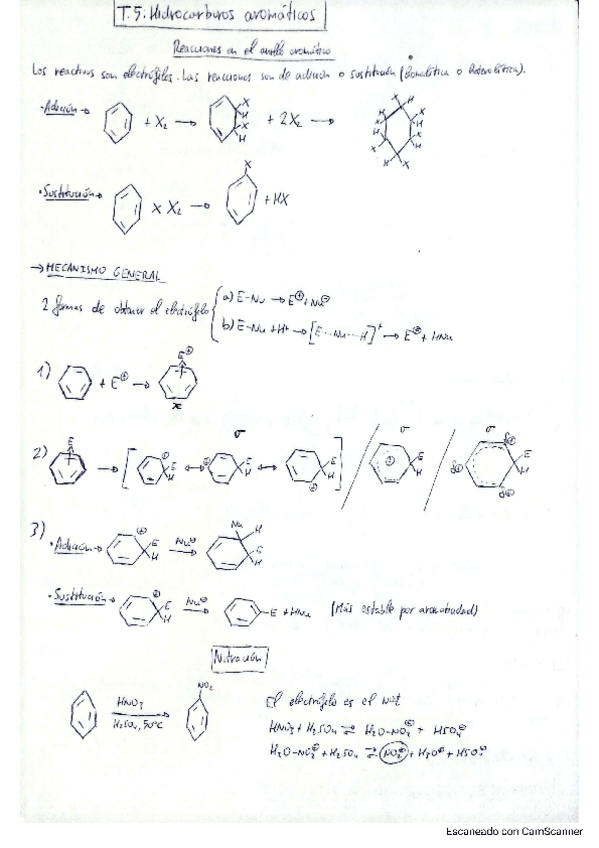 T.5: Hidrocarburos aromáticos
Reacciones en el anillo aromático
Los reactivos son electrófilos. Las reacciones son de adición o sustitución (homolítica o heterolítica).
· Adición → + X₂ → X H X H + 2X₂ → X H H X X H H X H X
· Sustitución → x X₂ → X + HX
→ MECANISMO GENERAL
2 formas de obtener el electrófilo { a) E-Nu → E⊕ + Nu⊖
b) E-Nu + H⁺ → [E....Nu....H]⁺ → E⊕ + HNu
1) + E⊕ → E⊕ π
2) E → [ ⊕ E H ↔ ⊕ E H ↔ ⊕ E H ] σ / ⊕ E H σ / δ⊕ δ⊕ δ⊕ E H σ
3) · Adición → ⊕ E H Nu⊖ → Nu H E H
· Sustitución → ⊕ E H Nu⊖ → E + HNu (Más estable por aromaticidad)
Nitración
HNO₃ → NO₂ El electrófilo es el NO₂⁺
H₂SO₄, 50ºC HNO₃ + H₂SO₄ ⇌ H₂O-NO₂⊕ + HSO₄⊖
H₂O-NO₂⊕ + H₂SO₄ ⇌ NO₂⊕ + H₃O⊕ + HSO₄⊖
Escaneado con CamScanner